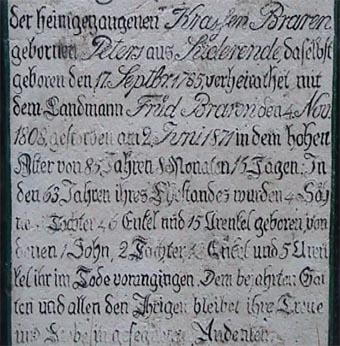 der heimgegangenen Krassen Braren
gebornen Peters aus Süderende, daselbst
geboren den 17. Septbr 1785 verheirathet mit
dem Landmann Früd Braren den 4. Nov.
1808, gestorben am 2. Juni 1871 in dem hohen
Alter von 85 Jahren 8 Monaten 15 Tagen. In
den 63 Jahren ihres Ehestandes wurden 4 Söh
ne Töchter Enkel und 15 Urenkel geboren, von
denen 1 Sohn, 2 Töchter Enkel und 5 Uren
kel ihr im Tode vorangingen. Dem bejahrten Gat
ten und allen den Ihrigen bleibet ihre Treue
und Liebe in gesegnetem Andenken.